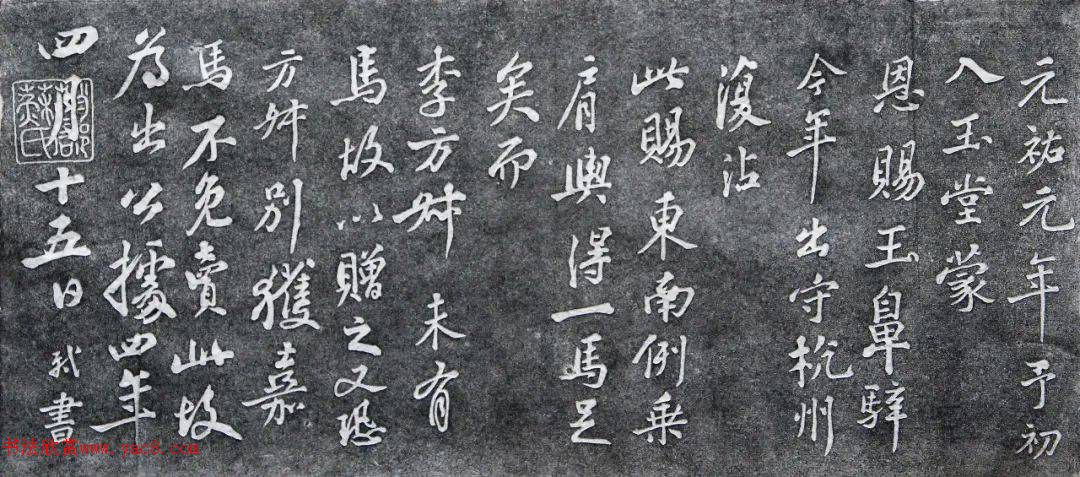 元祐元年予初
入玉堂蒙
恩賜玉鼻騂
今年出守杭州
復沾
此賜東南例乗
肩輿得一馬足
矣而
李方叔未有
馬故以贈之又恐
方叔別獲嘉
馬不免賣此故
為出公據四年
四月十五日軾書
书法欣赏www.yac8.com